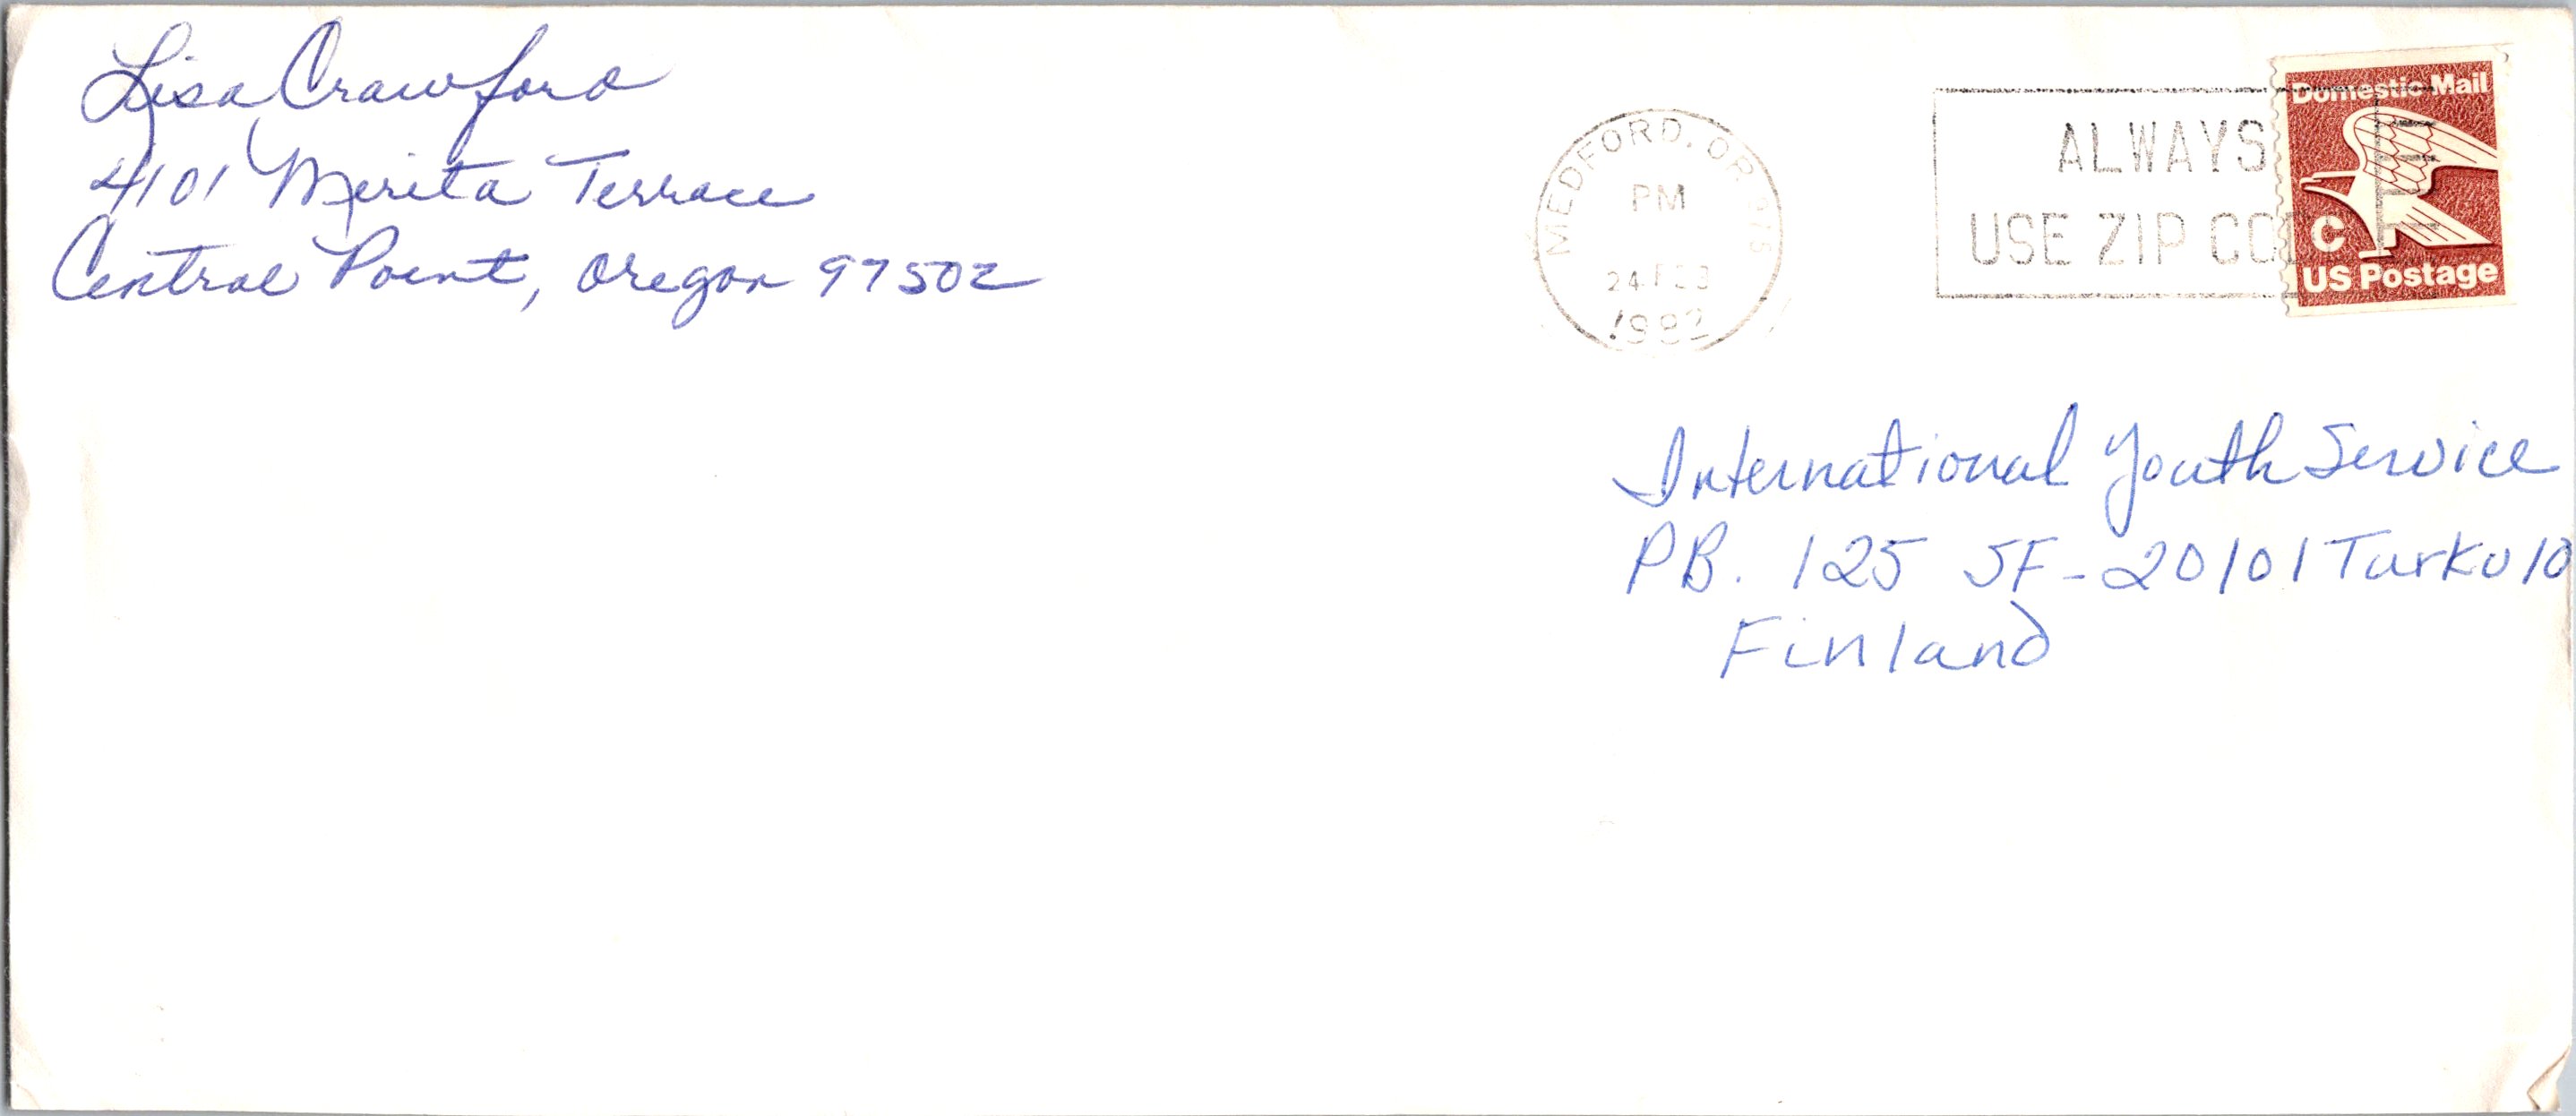 Lisa Crawford
4101 Merita Terrace
Central Point, Oregon 97502
MEDFORD, OR 975
PM
24 FEB
1982
ALWAYS
USE ZIP CODE
Domestic Mail
C
US Postage
International Youth Service
PB. 125 SF-20101 Turku 10
Finland